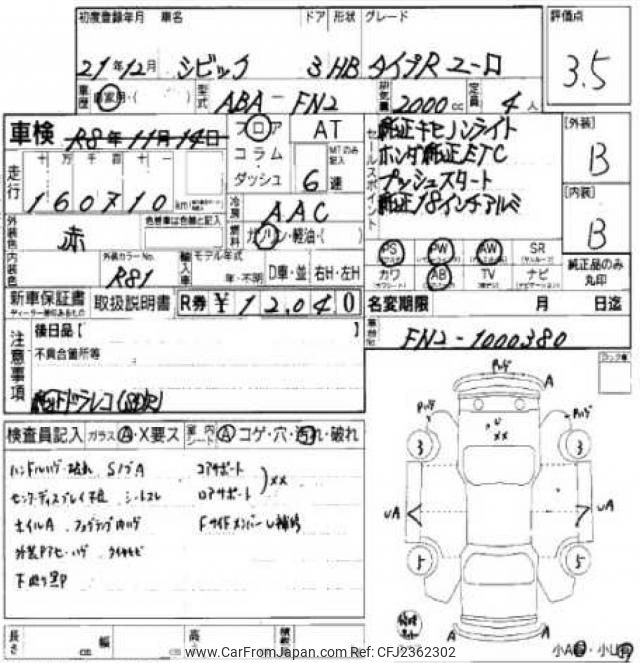 初度登録年月 車名 ドア 形状 グレード 評価点
21年12月 シビック 3 HB タイプR ユーロ 3.5
車歴 自家用・( ) 型式 ABA-FN2 排気量 2000cc 定員 4人
車検 R8年 11月 14日 フロア AT
コラム MTのみ記入
ダッシュ 6速
走行 十 万 千 百 十 一
160710km
セールスポイント
純正キセノンライト
ホンダ純正ETC
プッシュスタート
純正18インチアルミ
[外装] B
[内装] B
外装色 赤 色替車は色替と記入
冷房 AAC
燃料 ガソリン・軽油・( )
内装色 外装カラーNo. R81
輸入車 モデル年式 年・不明 D車・並 右H・左H
PS PW AW SR
カワ AB TV ナビ
純正品のみ丸印
新車保証書 取扱説明書 R券 ¥12,040
ディーラー印のあるもの
名変期限 月 日迄
注意事項
後日品【 】
不具合箇所等
車台No. FN2-1000380
検査員記入 ガラス A・X要ス 室内シート A コゲ・穴・汚れ・破れ
SノブA コアサポート
シートスレ ロアサポート XX
ホイルA
下廻り
A
XX
3 3
UA UA
5 5
A
長さ cm 幅 cm 高さ
小A 小U
www.CarFromJapan.com Ref: CFJ2362302